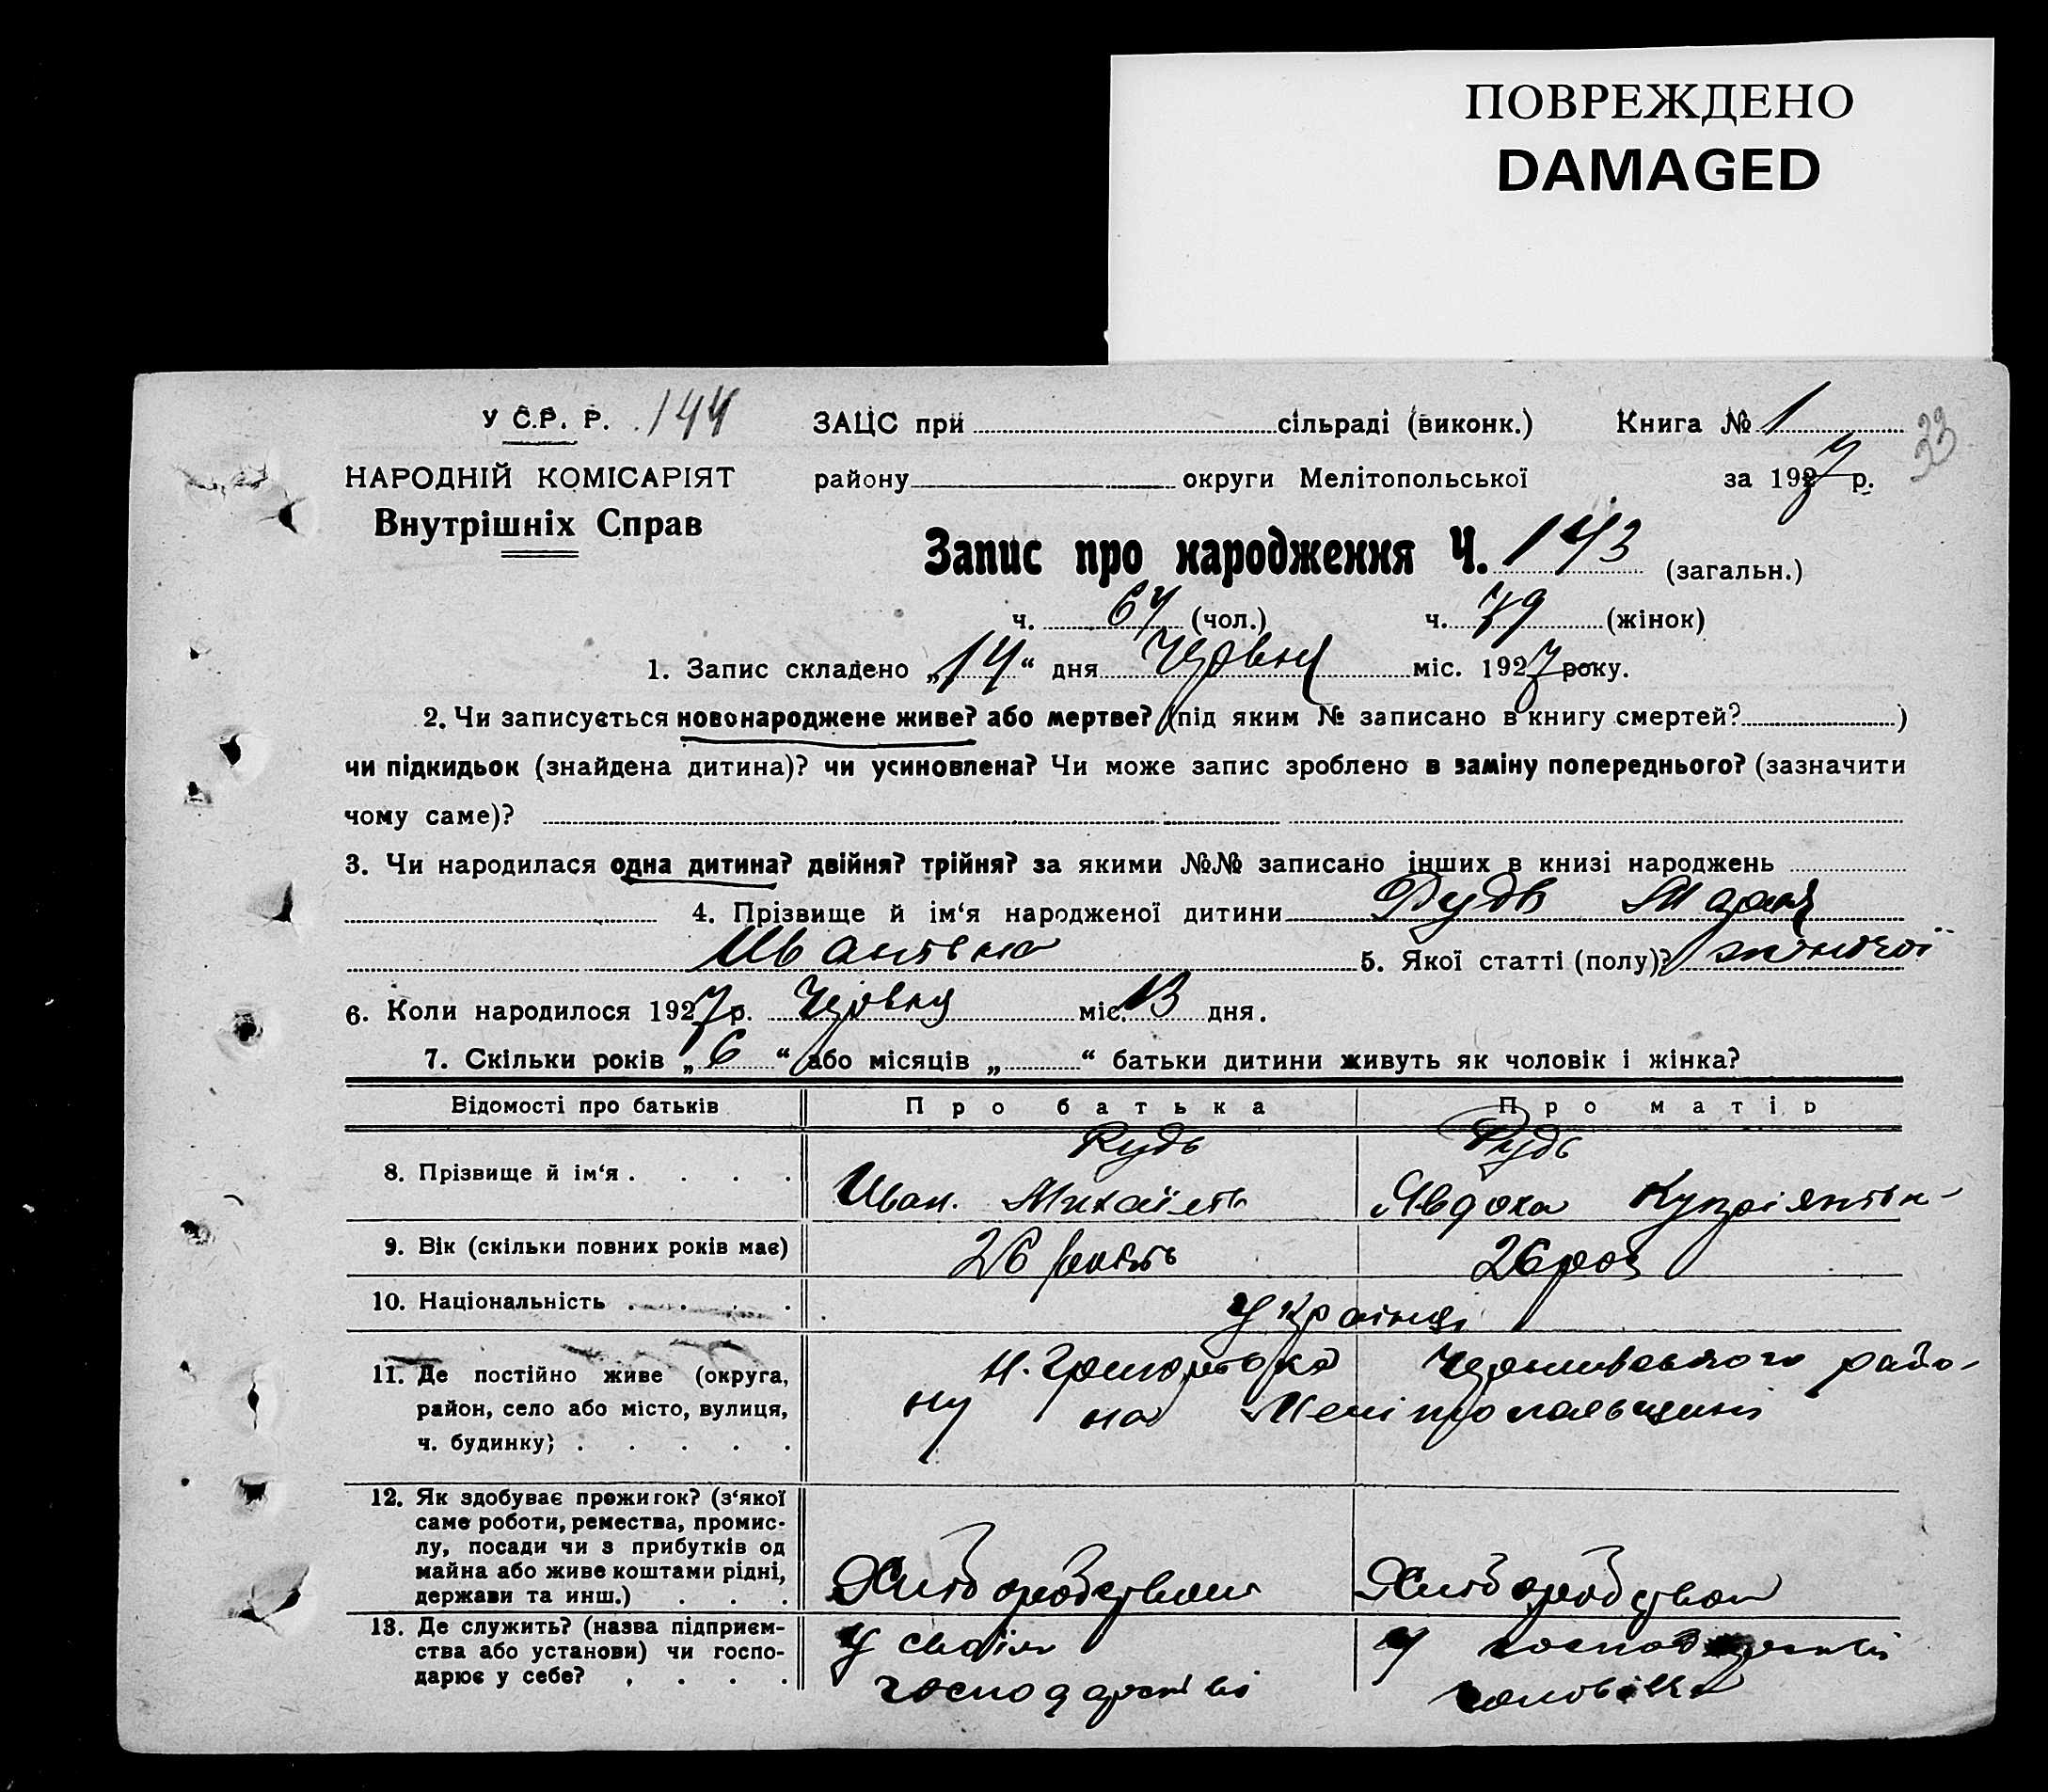 ПОВРЕЖДЕНО
DAMAGED
У С.Р. Р. 144 ЗАЦС при сільраді (виконк.) Книга № 1
33
НАРОДНІЙ КОМІСАРІЯТ району округи Мелітопольської за 1927 р.
Внутрішніх Справ
Запис про народження Ч. 143 (загальн.)
ч. 64 (чол.) ч. 79 (жінок)
1. Запис складено „14“ дня Червня міс. 1927 року.
2. Чи записується новонароджене живе? або мертве? (під яким № записано в книгу смертей? )
чи підкидьок (знайдена дитина)? чи усиновлена? Чи може запис зроблено в заміну попереднього? (зазначити
чому саме)?
3. Чи народилася одна дитина? двійня? трійня? за якими №№ записано інших в книзі народжень
4. Прізвище й ім‘я народженої дитини Рудь Марія
Иванівна 5. Якої статті (полу)? жіночої
6. Коли народилося 1927 р. Червня міс. 13 дня.
7. Скільки років „6“ або місяців „ “ батьки дитини живуть як чоловік і жінка?
Відомості про батьків Про батька Про матір
Рудь Рудь
8. Прізвище й ім‘я . . . . Иван. Михаїлів Явдоха Купріянівн-
9. Вік (скільки повних років має) 26 років 26 рок
10. Національність . . . . Українці
11. Де постійно живе (округа, Н. Григорівка Чернигівського райо-
район, село або місто, вулиця, ну на Мелітопольщині
ч. будинку; . . . . .
12. Як здобуває прожиток? (з‘якої
саме роботи, ремества, промис-
лу, посади чи з прибутків од
майна або живе коштами рідні, Хліборобством Хліборобством
держави та инш.) . . .
13. Де служить? (назва підприєм- У своїм У
ства або установи) чи госпо-
дарює у себе? . . . . господарстві чоловіка